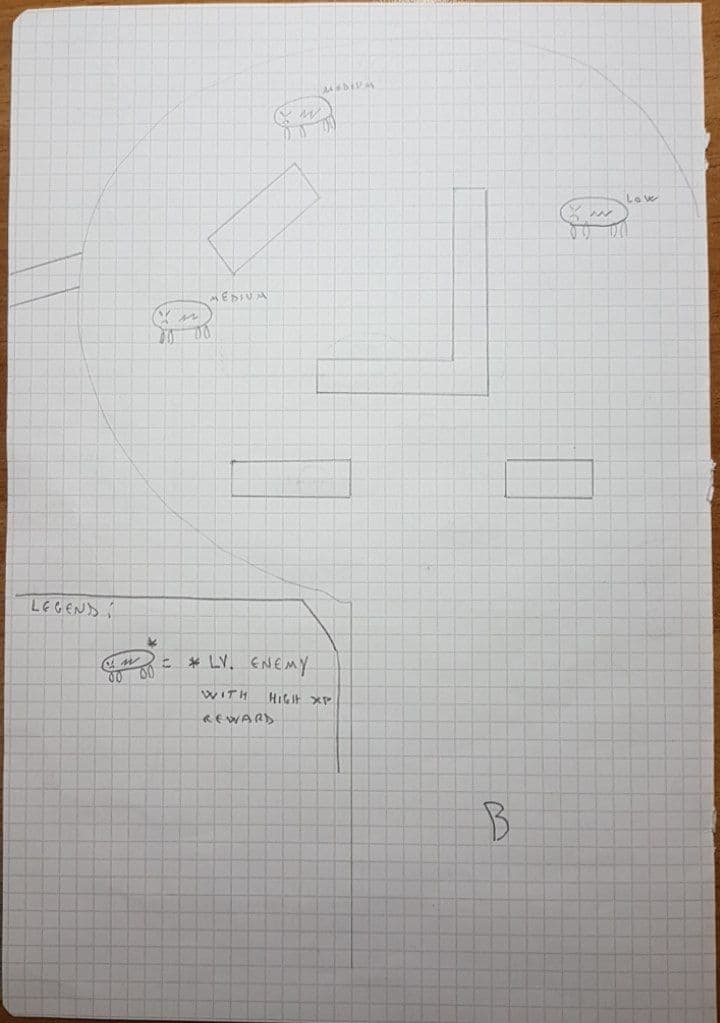 MEDIUM
LOW
MEDIUM
LEGEND:
*
= * LV. ENEMY
WITH HIGH XP
REWARD
B